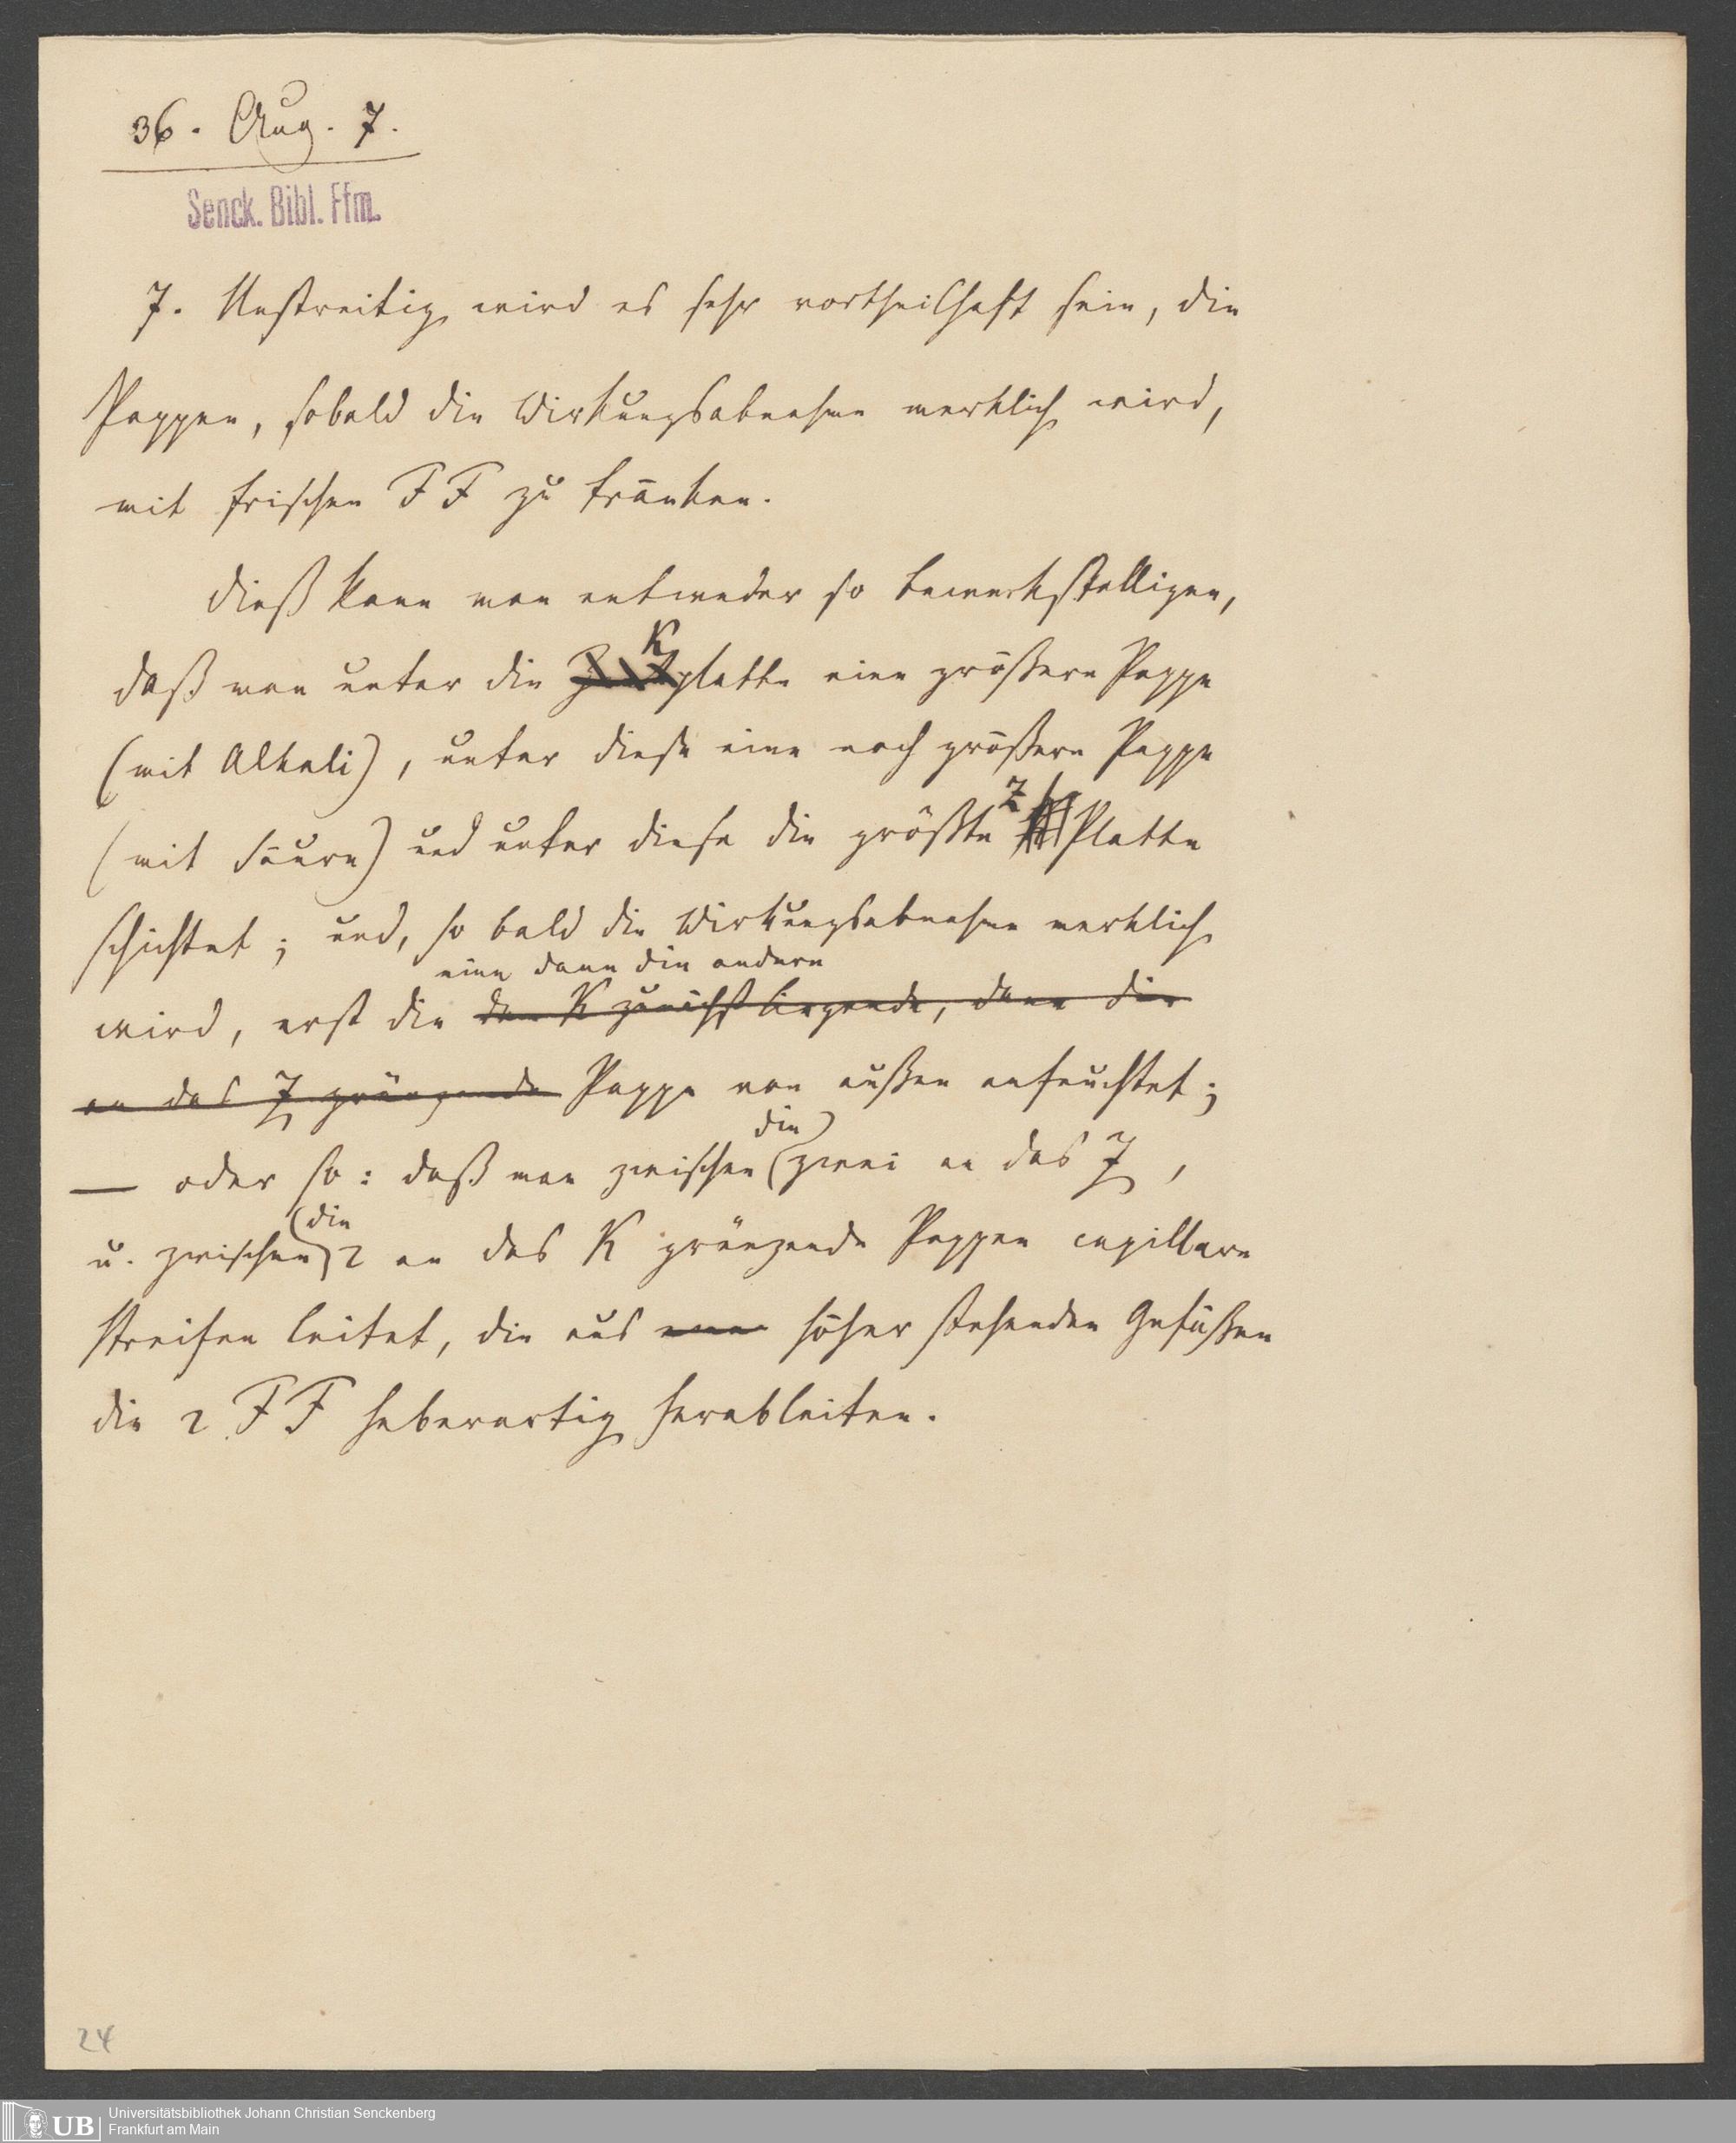 36. Aug. 7.
Senck. Bibl. Ffm.
7. Unstreitig wird es sehr vortheilhaft sein, die
Pappen, sobald die Wirkungsabnahme merklich wird,
mit frischen FF zu tränken.
Dieß kann man entweder so bewerkstelligen,
K
daß man unter die Zinkplatte eine größere Pappe
(mit Alkali), unter diese eine noch größere Pappe
Z
(mit Säure) und unter diese die größte Platte
schichtet; und, so bald die Wirkungsabnahme merklich
eine dann die andere
wird, erst die dem K zunächst liegende, dann die
an das Z gränzende Pappe von außen anfeuchtet;
die
— oder so: daß man zwischen zwei an das Z,
die
u. zwischen 2 an das K gränzende Pappen capillare
Streifen leitet, die aus höher stehenden Gefäßen
die 2 FF heberartig herableiten.
24
UB
Universitätsbibliothek Johann Christian Senckenberg
Frankfurt am Main